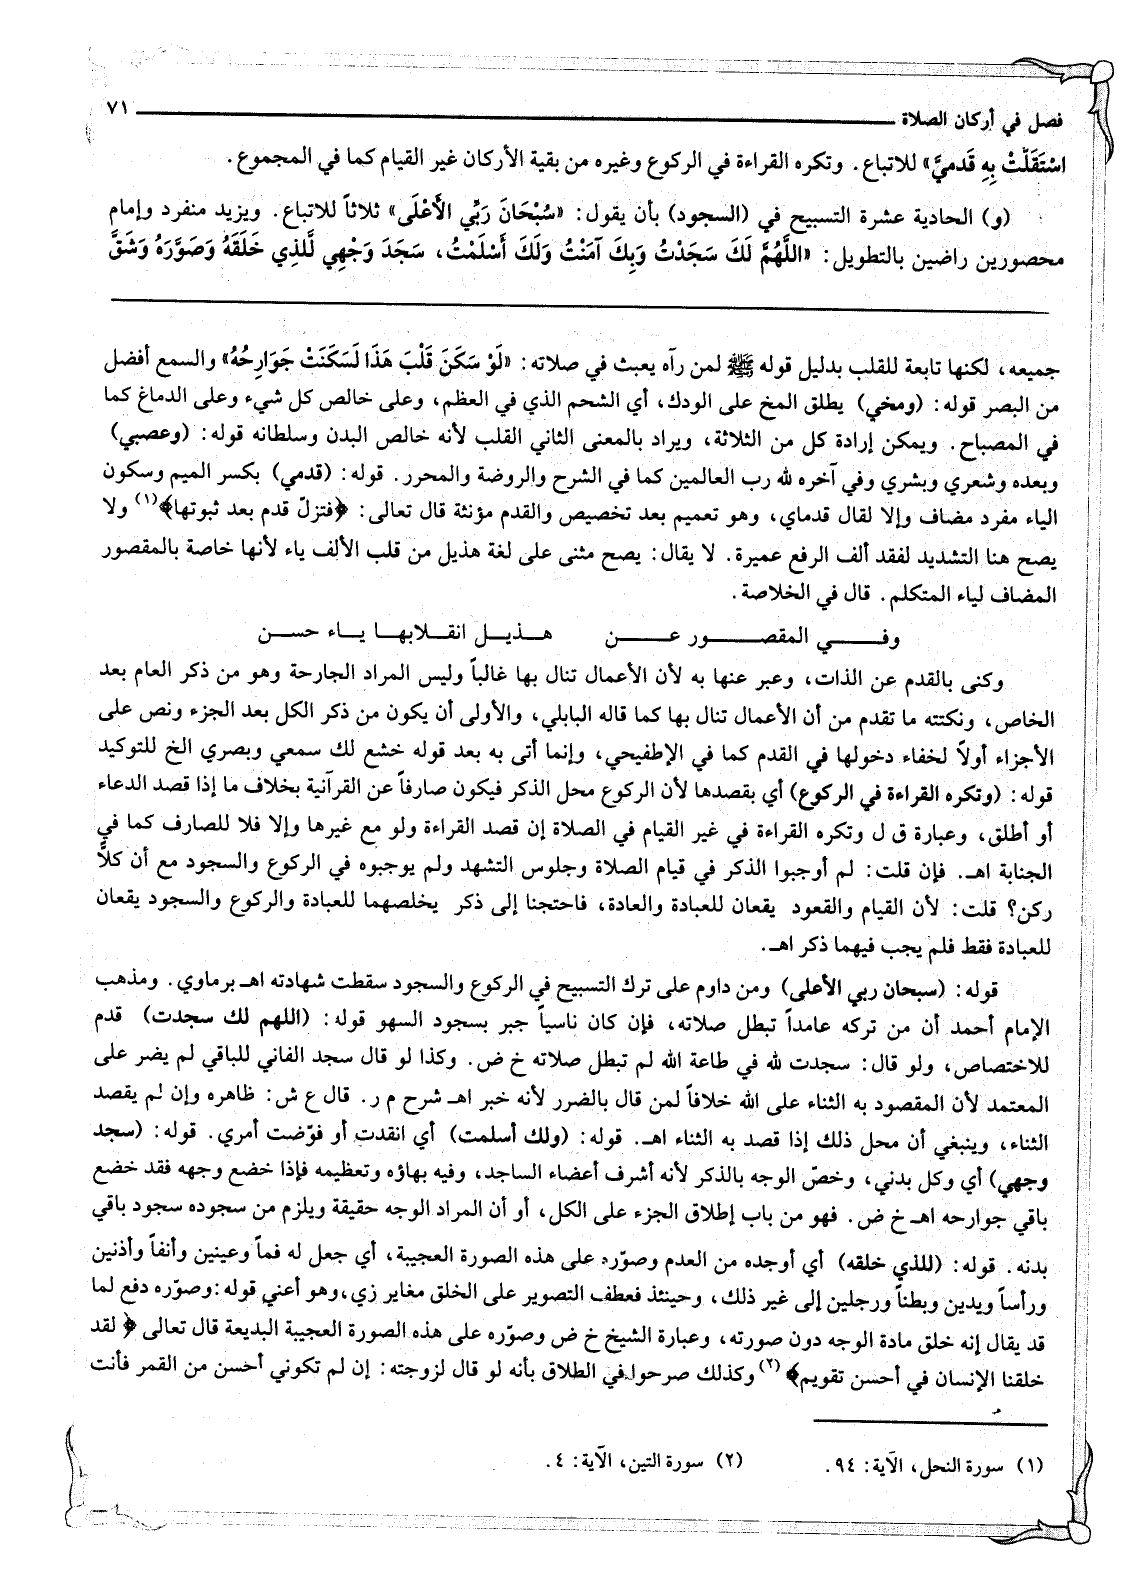 فصل في أركان الصلاة ٧١
اسْتَقَلَّتْ بِهِ قَدمِيَّ» للاتباع. وتكره القراءة في الركوع وغيره من بقية الأركان غير القيام كما في المجموع.
(و) الحادية عشرة التسبيح في (السجود) بأن يقول: «سُبْحَانَ رَبِّي الأَعْلَى» ثلاثاً للاتباع. ويزيد منفرد وإمام
محصورين راضين بالتطويل: «اللَّهُمَّ لَكَ سَجَدْتُ وَبِكَ آمَنْتُ وَلَكَ أَسْلَمْتُ، سَجَدَ وَجْهِي لِلَّذِي خَلَقَهُ وَصَوَّرَهُ وَشَقَّ
جميعه، لكنها تابعة للقلب بدليل قوله ﷺ لمن رآه يعبث في صلاته: «لَوْ سَكَنَ قَلْبَ هَذَا لَسَكَنَتْ جَوَارِحُهُ» والسمع أفضل
من البصر قوله: (ومخي) يطلق المخ على الودك، أي الشحم الذي في العظم، وعلى خالص كل شيء وعلى الدماغ كما
في المصباح. ويمكن إرادة كل من الثلاثة، ويراد بالمعنى الثاني القلب لأنه خالص البدن وسلطانه قوله: (وعصبي)
وبعده وشعري وبشري وفي آخره لله رب العالمين كما في الشرح والروضة والمحرر. قوله: (قدمي) بكسر الميم وسكون
الياء مفرد مضاف وإلا لقال قدماي، وهو تعميم بعد تخصيص والقدم مؤنثة قال تعالى: ﴿فتزلّ قدم بعد ثبوتها﴾(١) ولا
يصح هنا التشديد لفقد ألف الرفع عميرة. لا يقال: يصح مثنى على لغة هذيل من قلب الألف ياء لأنها خاصة بالمقصور
المضاف لياء المتكلم. قال في الخلاصة.
وفـي المقصـور عـن هـذيـل انقـلابهـا يـاء حسـن
وكنى بالقدم عن الذات، وعبر عنها به لأن الأعمال تنال بها غالباً وليس المراد الجارحة وهو من ذكر العام بعد
الخاص، ونكتته ما تقدم من أن الأعمال تنال بها كما قاله البابلي، والأولى أن يكون من ذكر الكل بعد الجزء ونص على
الأجزاء أولاً لخفاء دخولها في القدم كما في الإطفيحي، وإنما أتى به بعد قوله خشع لك سمعي وبصري الخ للتوكيد
قوله: (وتكره القراءة في الركوع) أي بقصدها لأن الركوع محل الذكر فيكون صارفاً عن القرآنية بخلاف ما إذا قصد الدعاء
أو أطلق، وعبارة ق ل وتكره القراءة في غير القيام في الصلاة إن قصد القراءة ولو مع غيرها وإلا فلا للصارف كما في
الجنابة اهـ. فإن قلت: لم أوجبوا الذكر في قيام الصلاة وجلوس التشهد ولم يوجبوه في الركوع والسجود مع أن كلاًّ
ركن؟ قلت: لأن القيام والقعود يقعان للعبادة والعادة، فاحتجنا إلى ذكر يخلصهما للعبادة والركوع والسجود يقعان
للعبادة فقط فلم يجب فيهما ذكر اهـ.
قوله: (سبحان ربي الأعلى) ومن داوم على ترك التسبيح في الركوع والسجود سقطت شهادته اهـ برماوي. ومذهب
الإمام أحمد أن من تركه عامداً تبطل صلاته، فإن كان ناسياً جبر بسجود السهو قوله: (اللهم لك سجدت) قدم
للاختصاص، ولو قال: سجدت لله في طاعة الله لم تبطل صلاته خ ض. وكذا لو قال سجد الفاني للباقي لم يضر على
المعتمد لأن المقصود به الثناء على الله خلافاً لمن قال بالضرر لأنه خبر اهـ شرح م ر. قال ع ش: ظاهره وإن لم يقصد
الثناء، وينبغي أن محل ذلك إذا قصد به الثناء اهـ. قوله: (ولك أسلمت) أي انقدت أو فوّضت أمري. قوله: (سجد
وجهي) أي وكل بدني، وخصّ الوجه بالذكر لأنه أشرف أعضاء الساجد، وفيه بهاؤه وتعظيمه فإذا خضع وجهه فقد خضع
باقي جوارحه اهـ خ ض. فهو من باب إطلاق الجزء على الكل، أو أن المراد الوجه حقيقة ويلزم من سجوده سجود باقي
بدنه. قوله: (للذي خلقه) أي أوجده من العدم وصوّره على هذه الصورة العجيبة، أي جعل له فماً وعينين وأنفاً وأذنين
ورأساً ويدين وبطناً ورجلين إلى غير ذلك، وحينئذ فعطف التصوير على الخلق مغاير زي، وهو أعني قوله: وصوّره دفع لما
قد يقال إنه خلق مادة الوجه دون صورته، وعبارة الشيخ خ ض وصوّره على هذه الصورة العجيبة البديعة قال تعالى ﴿لقد
خلقنا الإنسان في أحسن تقويم﴾(٢) وكذلك صرحوا في الطلاق بأنه لو قال لزوجته: إن لم تكوني أحسن من القمر فأنت
(١) سورة النحل، الآية: ٩٤. (٢) سورة التين، الآية: ٤.